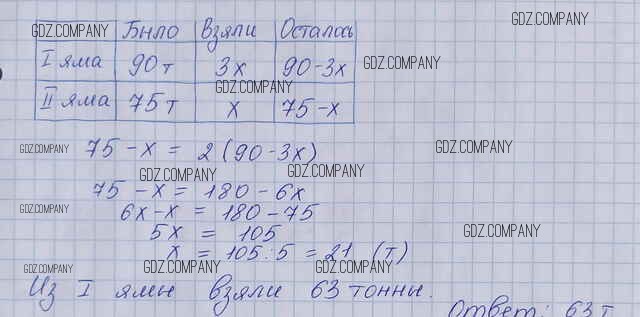 GDZ.COMPANY
GDZ.COMPANY Было Взяли Осталось
I яма 90т 3x 90-3x GDZ.COMPANY
GDZ.COMPANY
II яма 75т x 75-x
GDZ.COMPANY 75-x = 2(90-3x) GDZ.COMPANY
GDZ.COMPANY GDZ.COMPANY
75-x = 180-6x
GDZ.COMPANY 6x-x = 180-75
5x = 105 GDZ.COMPANY
x = 105:5 = 21 (т)
GDZ.COMPANY GDZ.COMPANY GDZ.COMPANY
Из I ямы взяли 63 тонны.
Ответ: 63т